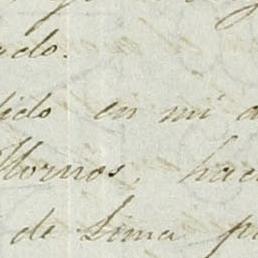 ado.
ido en mi a
Hornos, hac
de Lima p